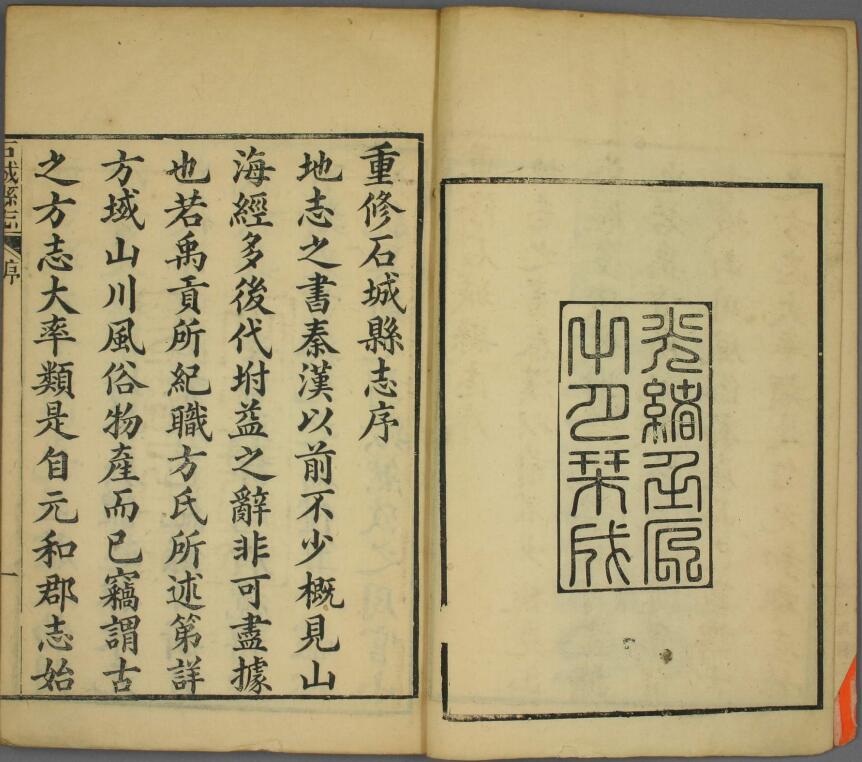 光緒壬辰
栞成
重修石城縣志序
地志之書秦漢以前不少概見山
海經多後代坿益之辭非可盡據
也若禹貢所紀職方氏所述第詳
方域山川風俗物產而已竊謂古
之方志大率類是自元和郡志始
石城縣志 序 一